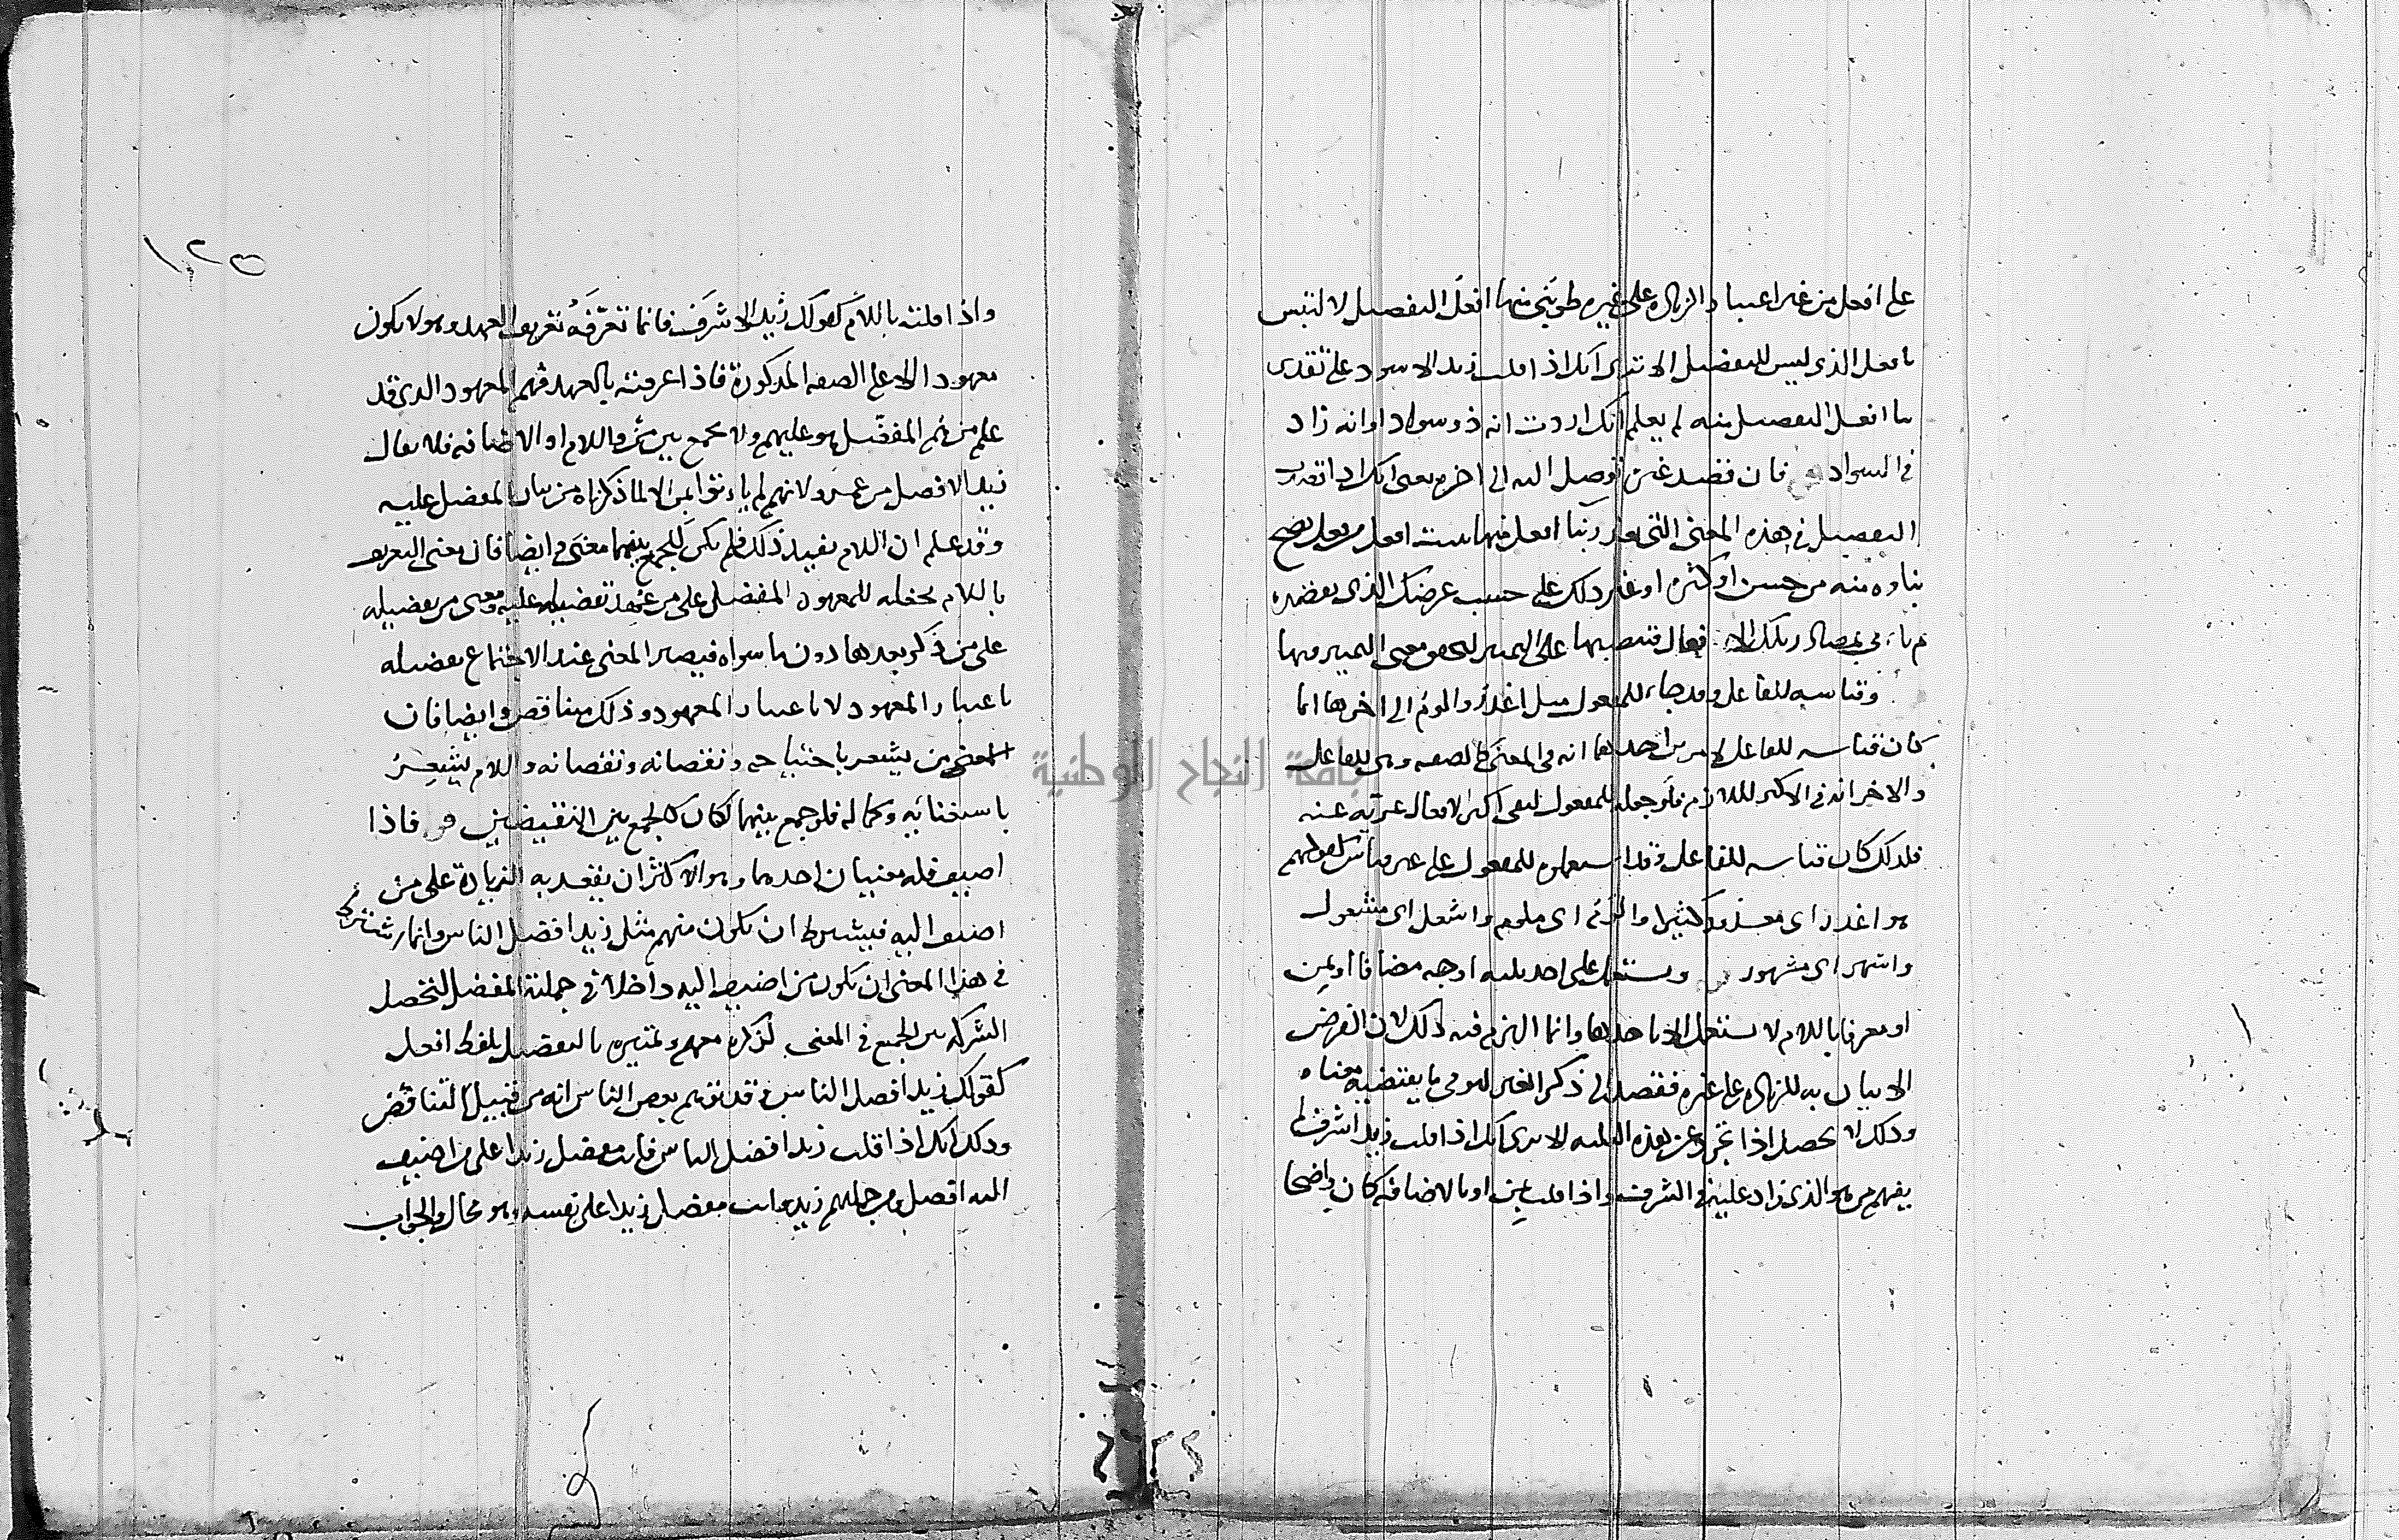 على افعل من غير اعتبار الزيادة على غيره فلو بني منها افعل التفضيل لالتبس
بافعل الذي ليس للتفضيل الا ترى انك اذا قلت زيد الاسود على تقدير
بنا افعل التفضيل منه لم يعلم انك اردت انه ذو سواد او انه زاد
في السواد فان قصد غيره توصل اليه الى اخره يعني انك اذا قصدت
التفضيل في هذه المعنى التي تعذر بنا افعل منها بنيت افعل من فعل يصح
بناوه منه من حسن او كثرة او غير ذلك على حسب غرضك الذي تقصده
ثم تاتي بمصادر تلك الافعال فتنصبها على التمييز لتحقق معنى التمييز فيها
وقياسه للفاعل وقد جاء للمفعول مثل اعذر والوم الى اخرها انما
كان قياسه للفاعل لامرين احدهما انه في المعنى كالصفة وهي للفاعل
والاخر انه في الاكثر لللازم فلو جعله للمفعول لبقي اكثر الافعال عرية عنه
فلذلك كان قياسه للفاعل وقد استعملوه للمفعول على غير قياس كقولهم
هو اعذر اي معذور كثيرا والوم اي ملوم واشغل اي مشغول
واشهر اي مشهور ويستعمل على احد ثلثه اوجه مضافا او بمن
او معرفا باللام لا يستعمل الا باحدها وانما التزم فيه ذلك لان الغرض
الاتيان به للزيادة على غيره فقصد الى ذكر الغير ليوفى ما يقتضيه معناه
وذلك لا يحصل اذا تجرد عن هذه الثلثه الا ترى انك اذا قلت زيد اشرف لم
يفهم من هو الذي زاد عليه في الشرف واذا قلت بمن او بالاضافة كان واضحا
١٢٥
واذا قلته باللام كقولك زيد الاشرف فانما تعرفه تعريف العهد وهو لا يكون
معهودا الا على الصفه المذكورة فاذا عرفته بالعهد فهم المعهود الذي قد
علم من ثم المفضل هو عليهم ولا يجمع بين من واللام او الاضافه فلا يقال
زيد الافضل من عمرو لانهم لم ياتوا بمن الا لما ذكرناه من بيان المفضل عليه
وقد علم ان اللام تفيد ذلك فلم يكن للجمع بينهما معنى وايضا فان معنى التعريف
باللام يجعله للمعهود المفضل على من عهد تفضيله عليه ومعنى من تفضيله
على من ذكر بعدها دون ما سواه فيصير المعنى عند الاجتماع تفضيله
باعتبار المعهود لا باعتبار المعهود وذلك متناقض وايضا فان
المعنى من يشعر باحتياجه ونقصانه واللام يشعر
باستغنائه وكماله فلو جمع بينهما لكان كالجمع بين النقيضين فاذا
اضيف فله معنيان احدهما وهو الاكثر ان يقصد به الزيادة على من
اضيف اليه فيشترط ان يكون منهم مثل زيد افضل الناس وانما يشترط
في هذا المعنى ان يكون من اضيف اليه داخلا في جملته المفضل لتحصل
الشركه بين الجميع في المعنى لذكره معهم وتميزه بالتفضيل بلفظ افعل
كقولك زيد افضل الناس وقد توهم بعض الناس انه من قبيل التناقض
وذلك انك اذا قلت زيد افضل الناس فانت مفضل زيدا على من اضيف
اليه افضل ومن جملتهم زيد فانت مفضل زيدا على نفسه وهو محال والجواب
جامعة النجاح الوطنية